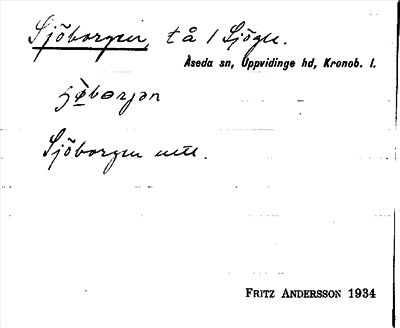 Sjöborgen, t å 1 Sjögle.
Åseda sn, Uppvidinge hd, Kronob. l.
Sjöborgen uttl.
FRITZ ANDERSSON 1934